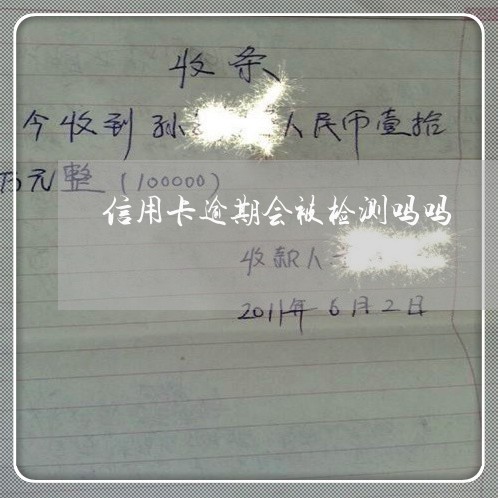 收条
今收到孙人民币壹拾
万元整(100000)
信用卡逾期会被检测吗吗
收款人
2011年6月2日